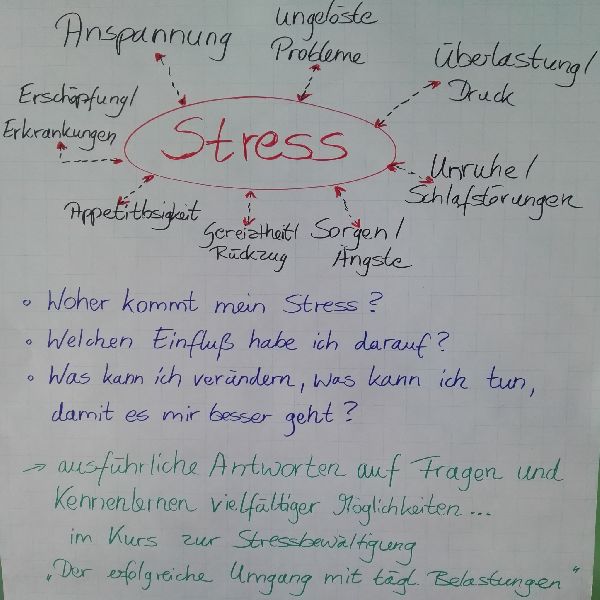 Anspannung
ungelöste
Probleme
Überlastung/
Druck
Erschöpfung/
Erkrankungen
Stress
Unruhe/
Schlafstörungen
Appetitlosigkeit
Gereiztheit/
Rückzug
Sorgen/
Ängste
° Woher kommt mein Stress?
° Welchen Einfluß habe ich darauf?
° Was kann ich verändern, was kann ich tun,
damit es mir besser geht?
→ ausführliche Antworten auf Fragen und
Kennenlernen vielfältiger Möglichkeiten...
im Kurs zur Stressbewältigung
„Der erfolgreiche Umgang mit tägl. Belastungen"